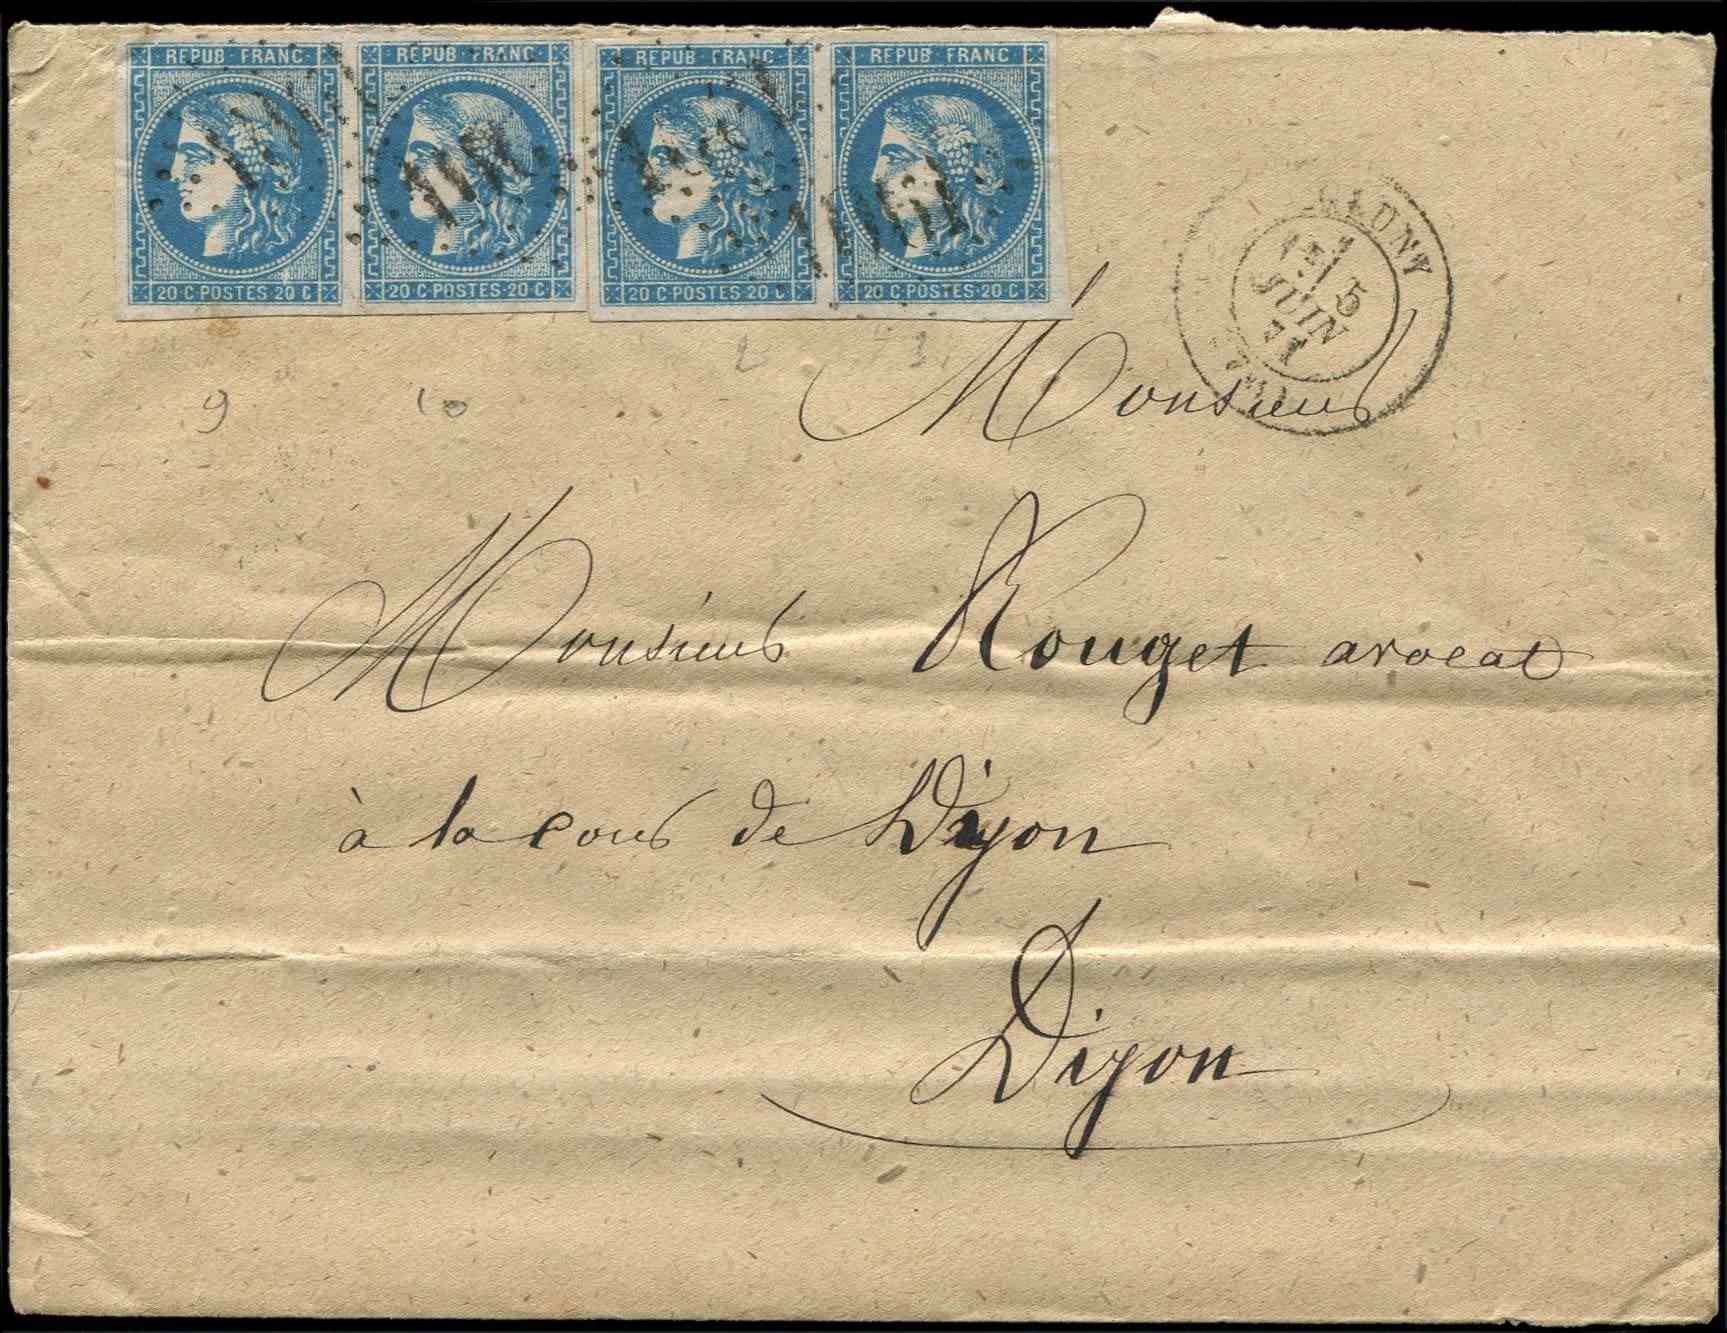 REPUB FRANC REPUB FRANC REPUB FRANC REPUB FRANC
20 C POSTES 20 C 20 C POSTES 20 C 20 C POSTES 20 C 20 C POSTES 20 C
CLUNY
5
JUIN
71
9 10 2 1
Monsieur
Monsieur Rouget avocat
à la cour de Dijon
Dijon